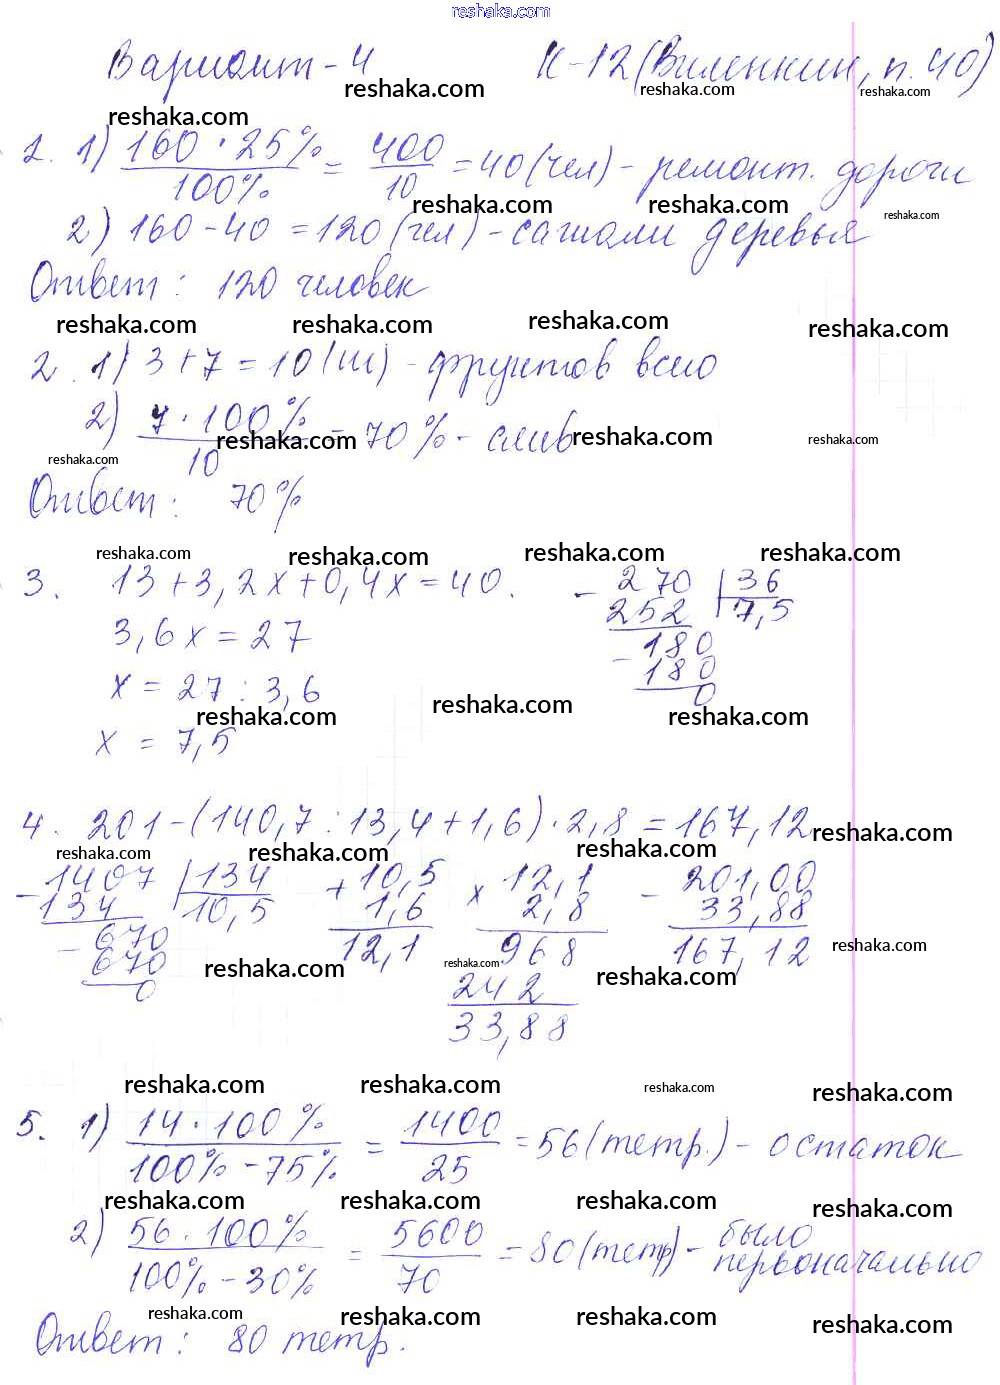 reshaka.com
Вариант-4 К-12 (Виленкин, п. 40)
reshaka.com reshaka.com reshaka.com
reshaka.com
1. 1) 160 · 25% / 100% = 400 / 10 = 40 (чел) - ремонт. дороги
reshaka.com reshaka.com reshaka.com
2) 160 - 40 = 120 (чел) - сажали деревья
Ответ: 120 человек
reshaka.com reshaka.com reshaka.com reshaka.com
2. 1) 3 + 7 = 10 (ш) - фруктов всего
2) 7 · 100% / 10 = 70% - слив
reshaka.com reshaka.com reshaka.com
reshaka.com
Ответ: 70%
reshaka.com reshaka.com reshaka.com reshaka.com
3. 13 + 3,2x + 0,4x = 40.
3,6x = 27
x = 27 : 3,6
x = 7,5
- 270 | 36
252 | 7,5
- 180
180
0
reshaka.com reshaka.com reshaka.com
4. 201 - (140,7 : 13,4 + 1,6) · 2,8 = 167,12
reshaka.com reshaka.com reshaka.com reshaka.com
- 1407 | 134
134 | 10,5
- 670
670
0
+ 10,5
1,6
12,1
× 12,1
2,8
968
242
33,88
- 201,00
33,88
167,12
reshaka.com reshaka.com reshaka.com reshaka.com
reshaka.com reshaka.com reshaka.com reshaka.com
5. 1) 14 · 100% / 100% - 75% = 1400 / 25 = 56 (тетр.) - остаток
reshaka.com reshaka.com reshaka.com reshaka.com
2) 56 · 100% / 100% - 30% = 5600 / 70 = 80 (тетр) - было первоначально
reshaka.com reshaka.com reshaka.com reshaka.com
Ответ: 80 тетр.